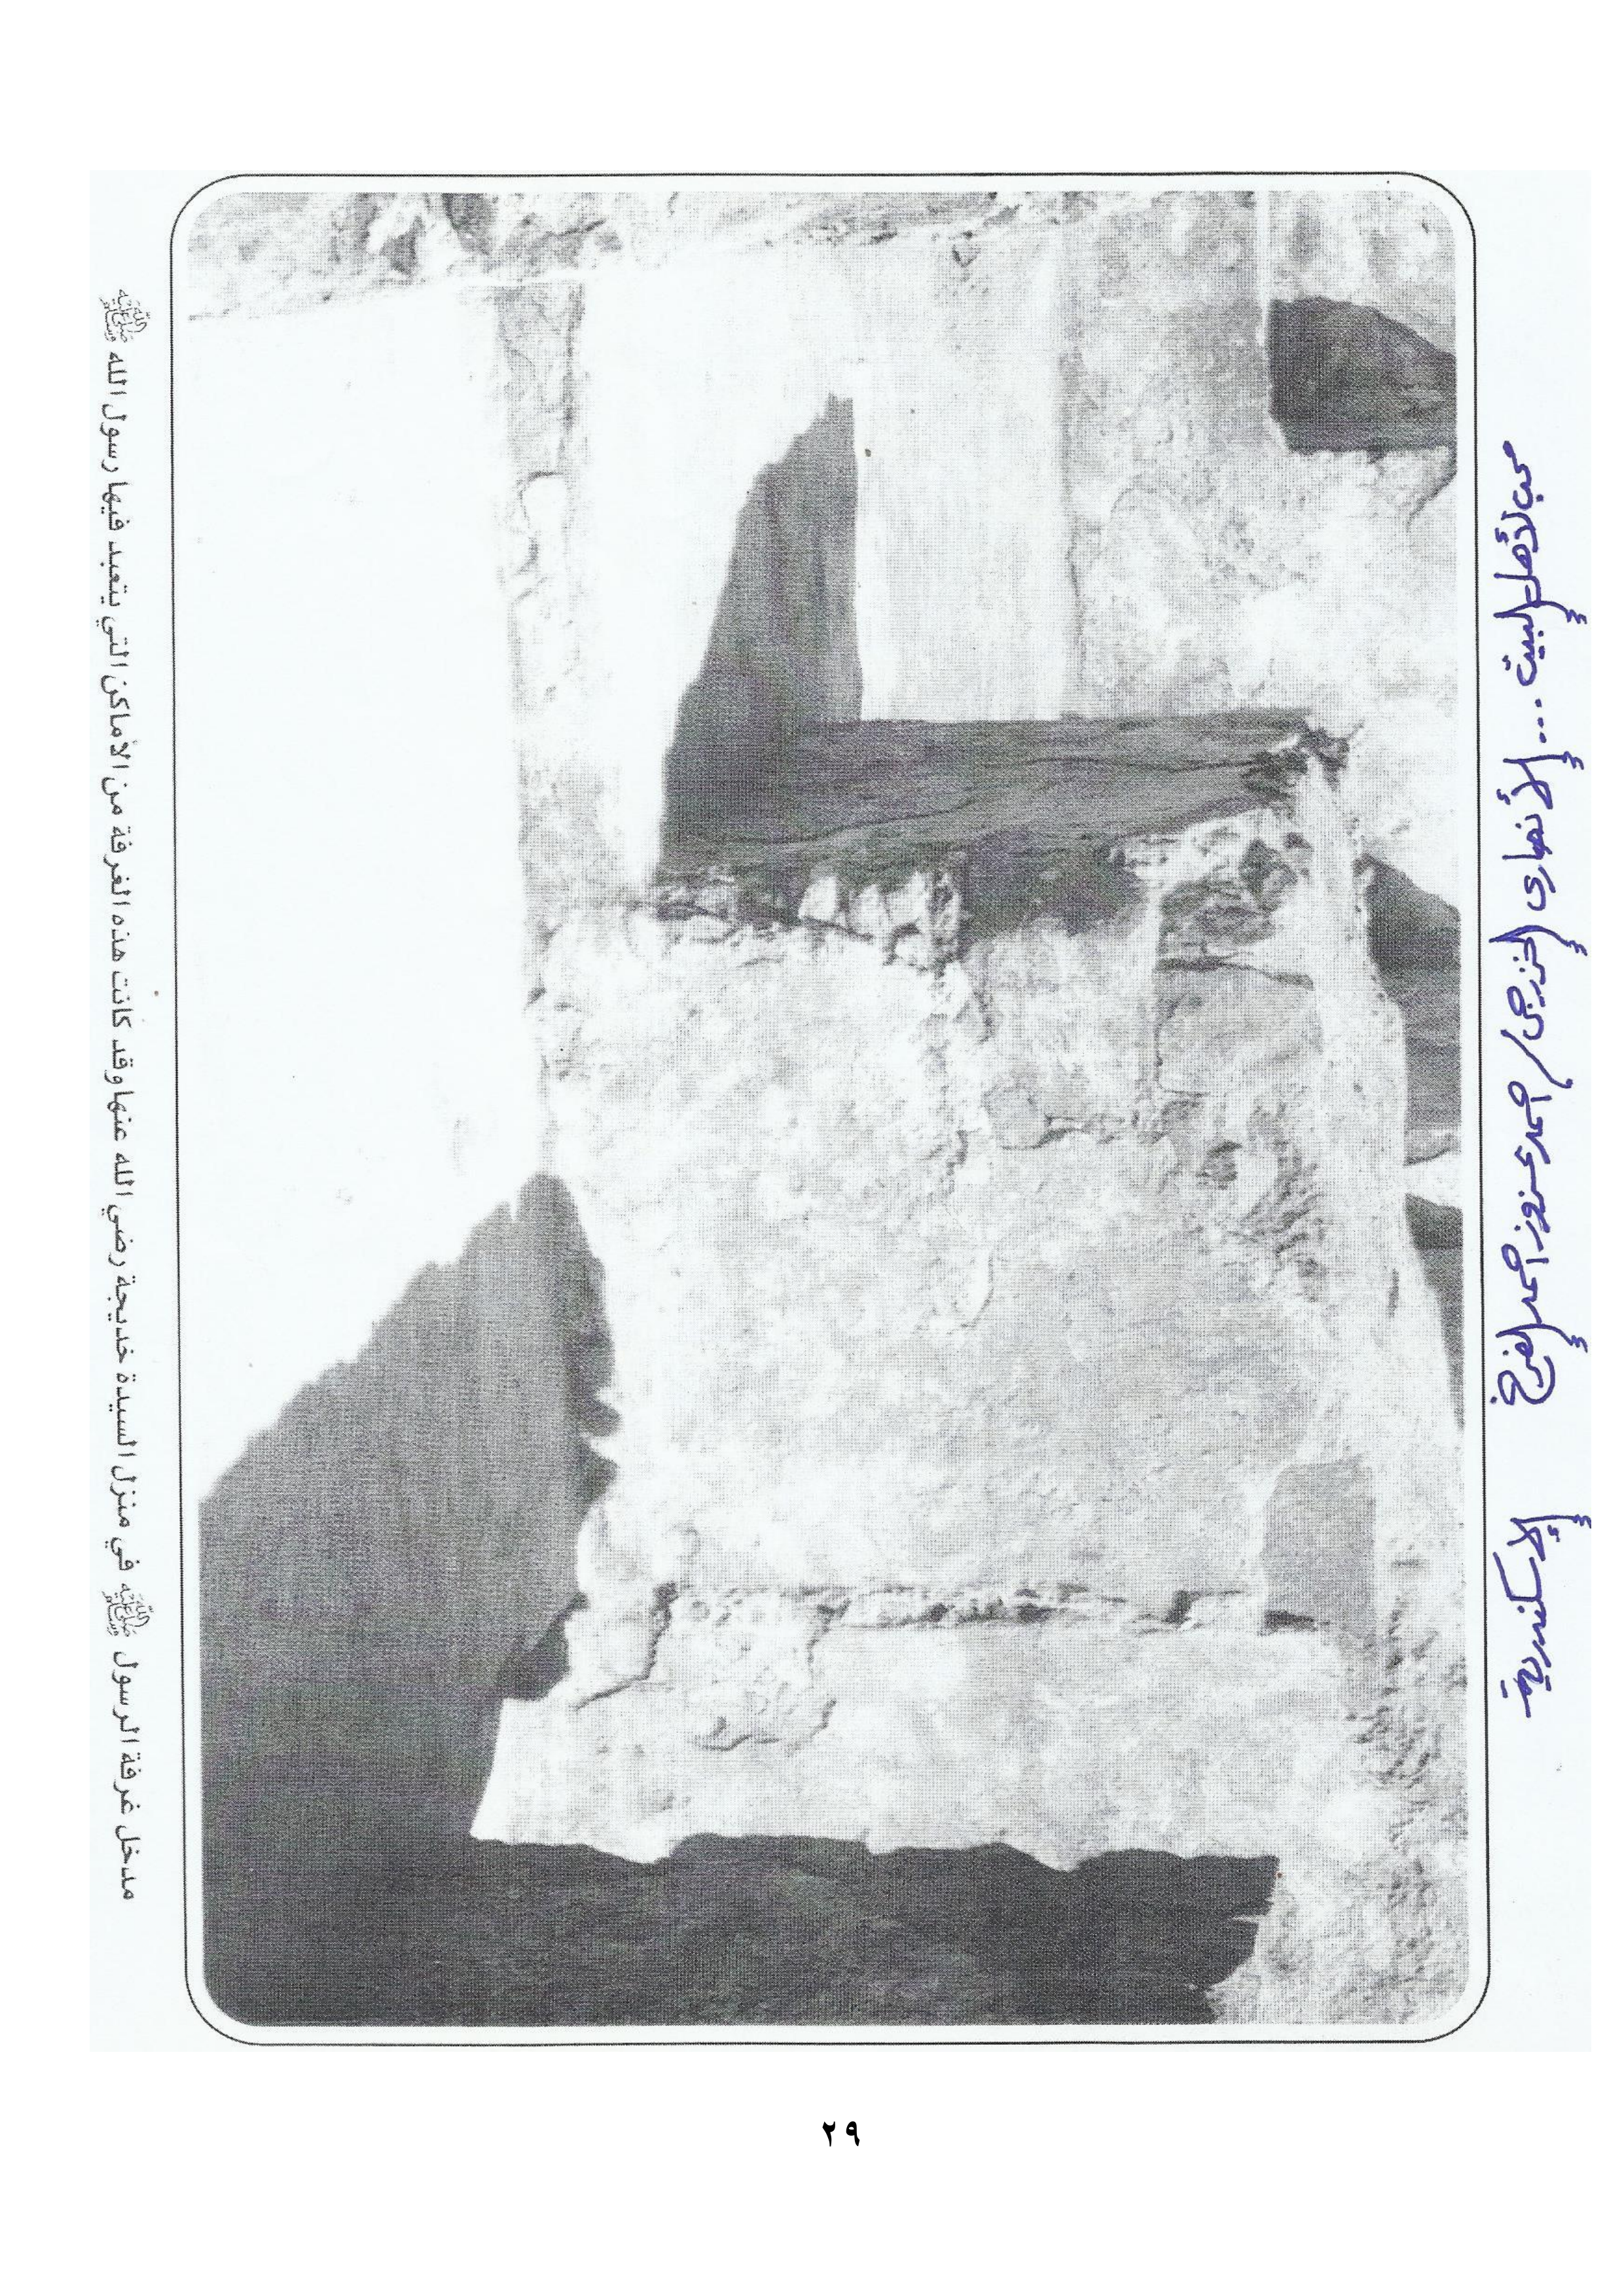 محب لأهل البيت ... الأنصارى الخزرجى / احمد عزوز احمد الفرخ الإسكندرية
مدخل غرفة الرسول ﷺ في منزل السيدة خديجة رضي الله عنها وقد كانت هذه الغرفة من الأماكن التي يتعبد فيها رسول الله ﷺ
٢٩